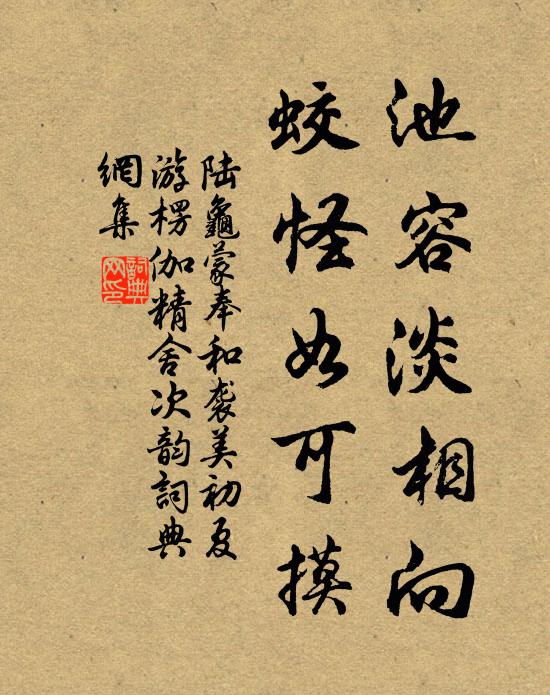 池容淡相向
蛟怪如可摸
陆龜蒙奉和袭美初夏
游楞伽精舍次韵詞典
網集
詞典
网印